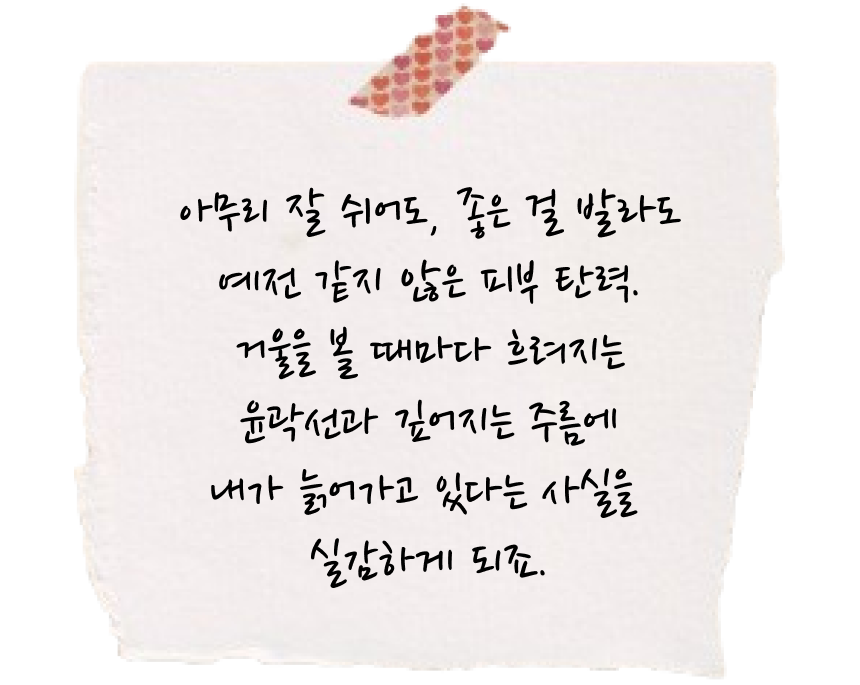 아무리 잘 쉬어도, 좋은 걸 발라도
예전 같지 않은 피부 탄력.
거울을 볼 때마다 흐려지는
윤곽선과 깊어지는 주름에
내가 늙어가고 있다는 사실을
실감하게 되죠.